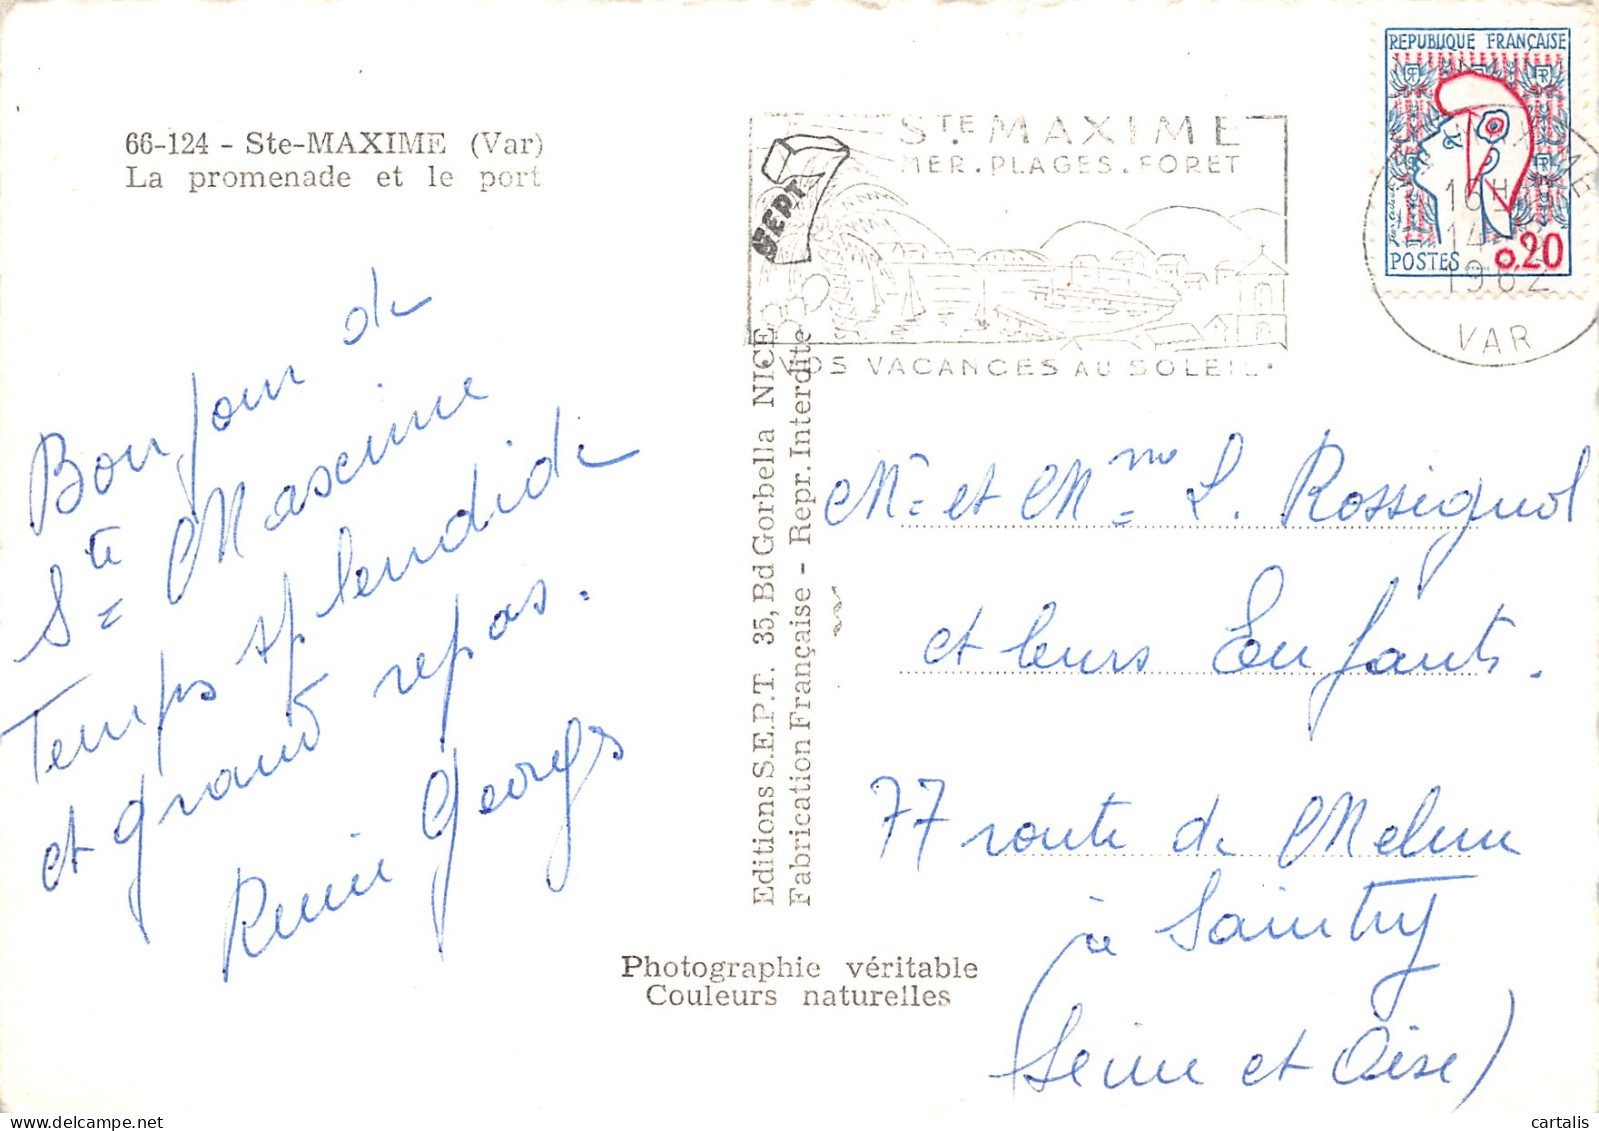 66-124 - Ste-MAXIME (Var)
La promenade et le port
Bonjour de
Ste Maxime
Temps splendide
et grand repas.
Georges
Editions S.E.P.T. 35, Bd Gorbella NICE
Fabrication Française - Repr. Interdite
Photographie véritable
Couleurs naturelles
SEPT
STE MAXIME
MER. PLAGES. FORET
VOS VACANCES AU SOLEIL.
REPUBLIQUE FRANÇAISE
RF
RF
POSTES 0,20
16H
14
1962
VAR
Mr et Mme L. Rossignol
et leurs Enfants.
77 route de Melun
à Saintry
(Seine et Oise)
cartalis